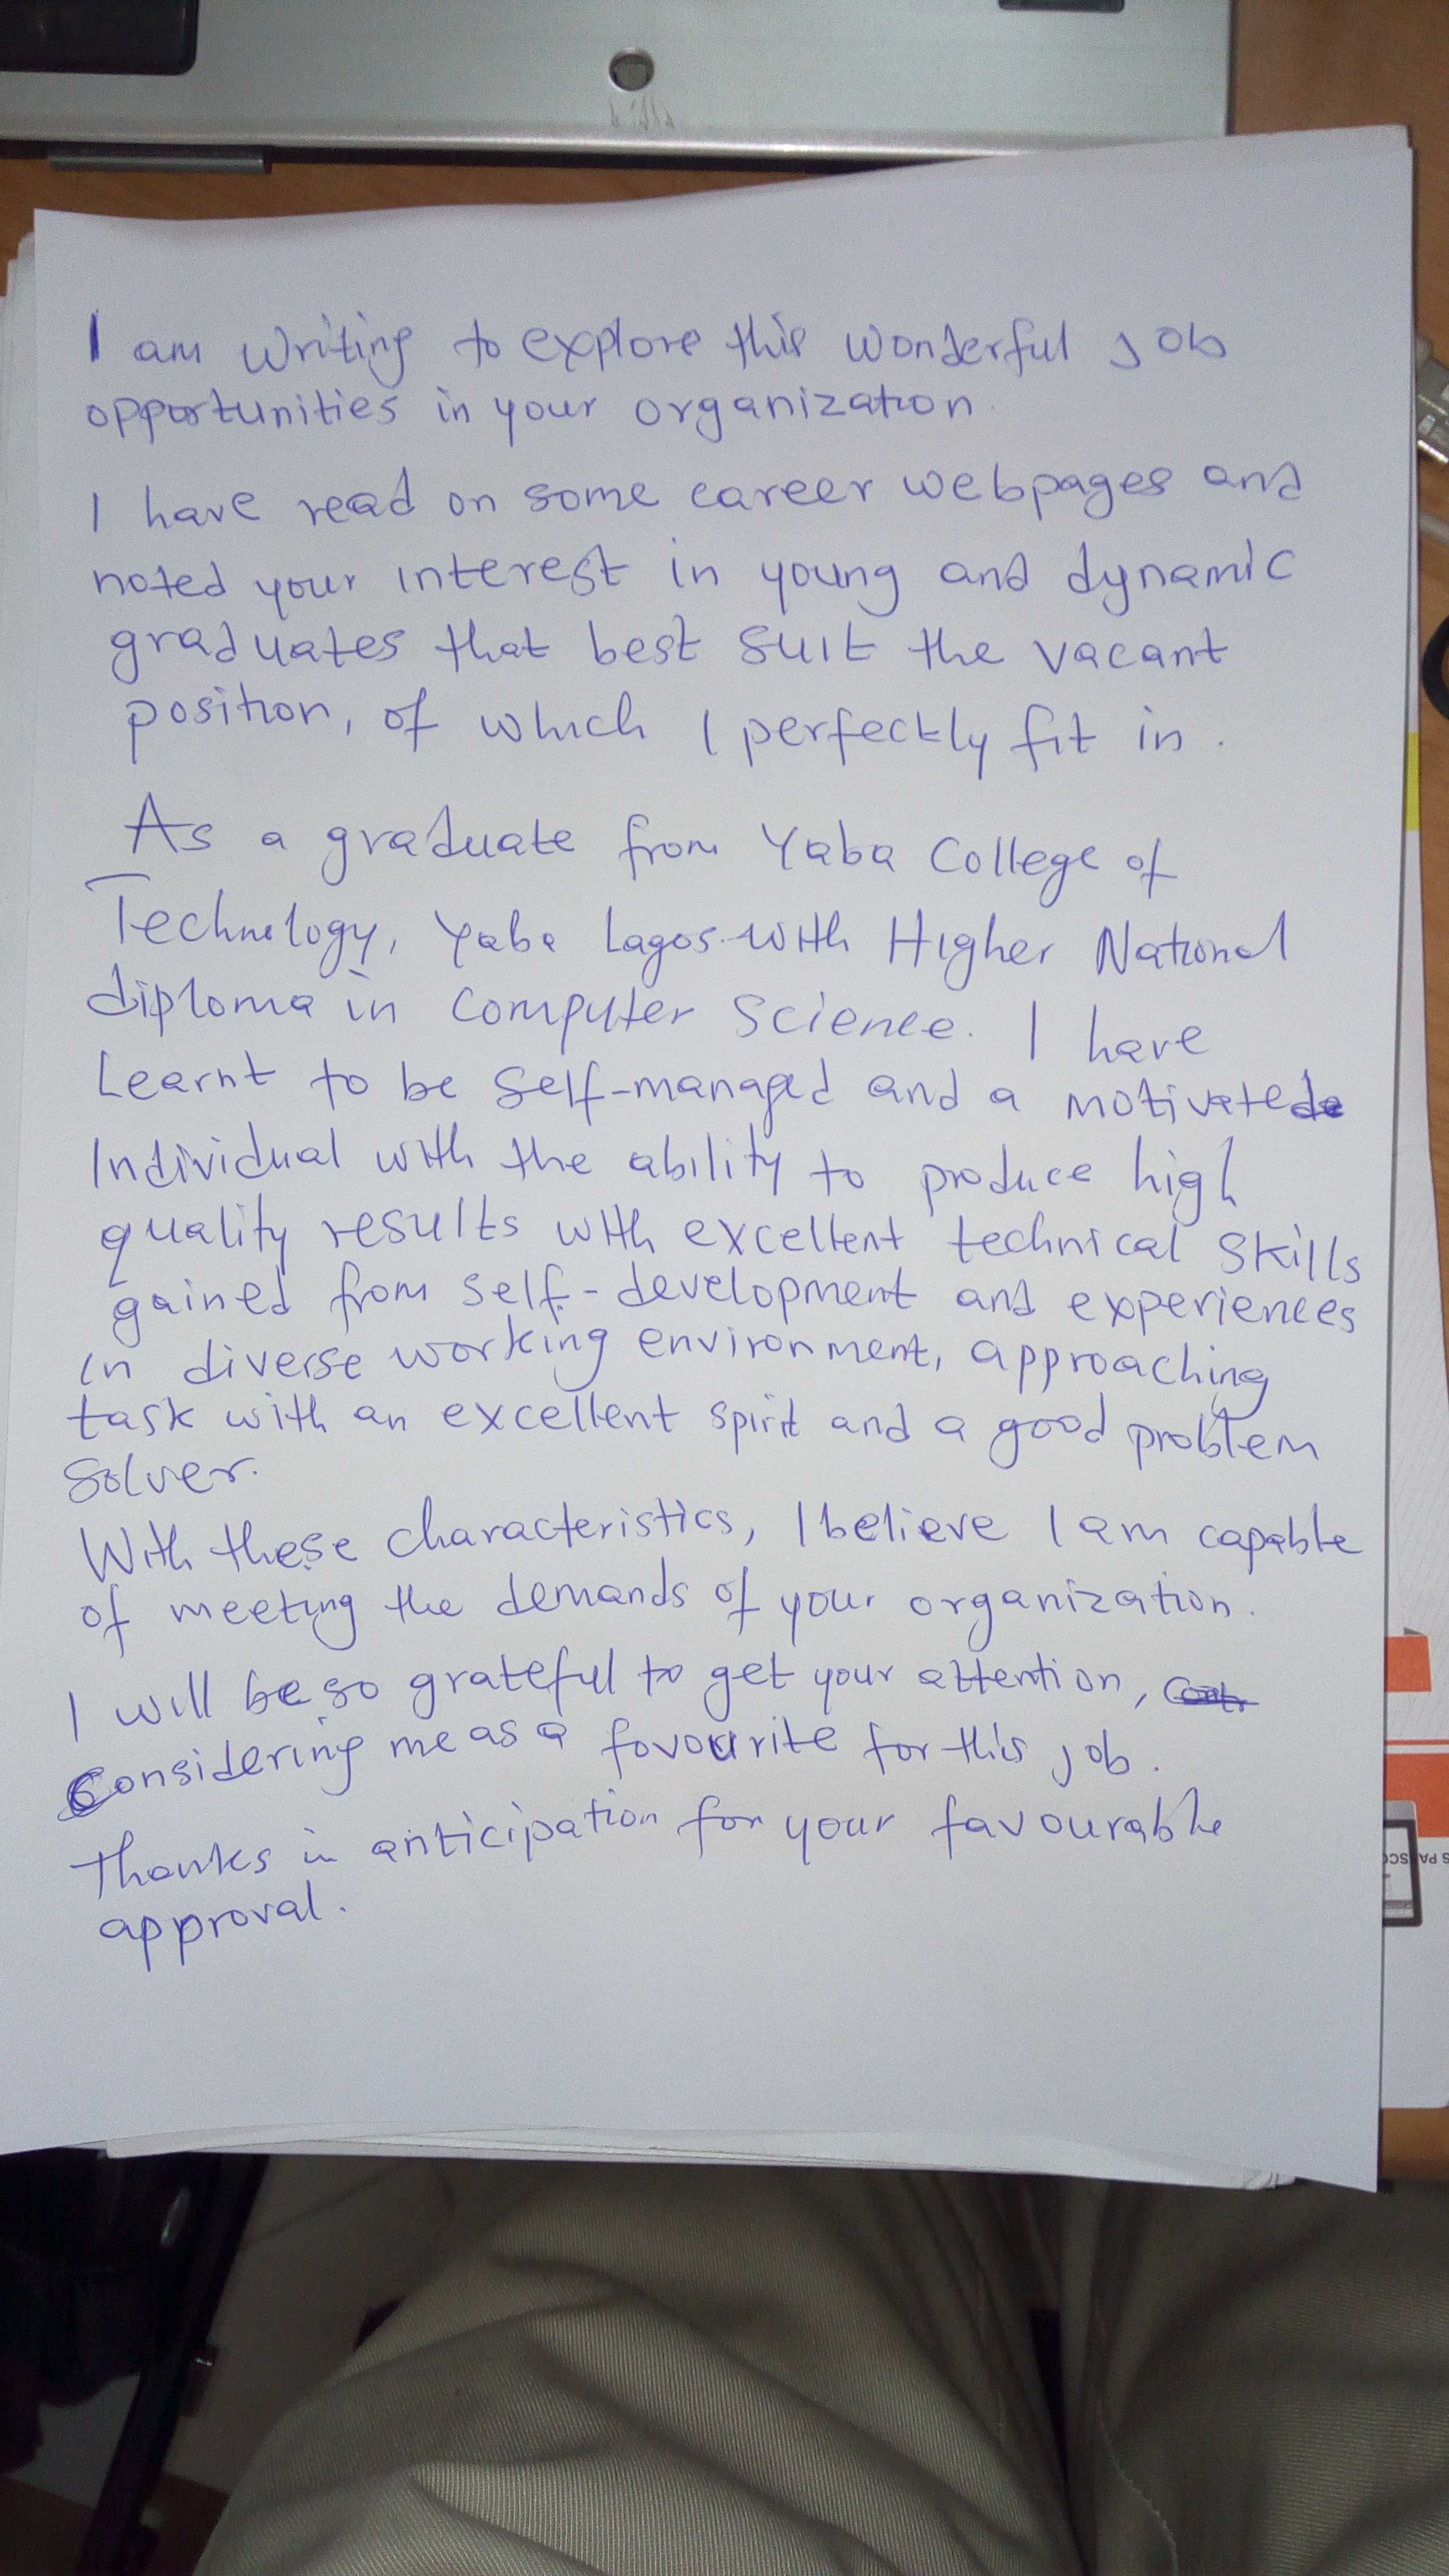 I am writing to explore this wonderful job
opportunities in your organization.
I have read on some career webpages and
noted your interest in young and dynamic
graduates that best suit the vacant
position, of which I perfectly fit in.
As a graduate from Yaba College of
Technology, Yaba Lagos with Higher National
diploma in Computer Science. I have
Learnt to be self-managed and a motivated
Individual with the ability to produce high
quality results with excellent technical skills
gained from self-development and experiences
in diverse working environment, approaching
task with an excellent spirit and a good problem
solver.
With these characteristics, I believe I am capable
of meeting the demands of your organization.
I will be so grateful to get your attention,
Considering me as a favourite for this job.
Thanks in anticipation for your favourable
approval.